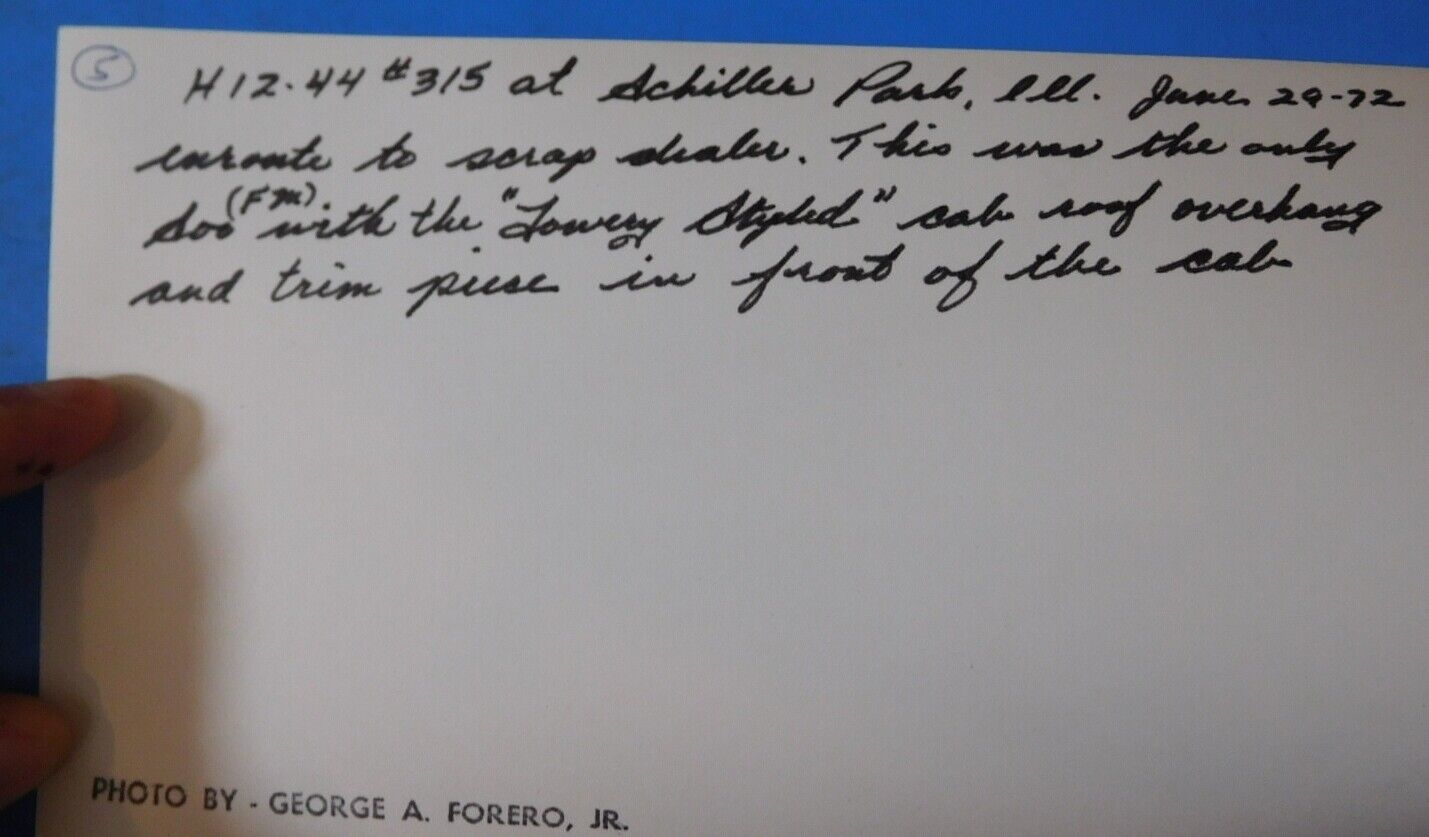 5
H12-44 #315 at Schiller Park, Ill. June 29-72
enroute to scrap dealer. This was the only
Soo (FM) with the "Lowery Styled" cab roof overhang
and trim piese in front of the cab
PHOTO BY - GEORGE A. FORERO, JR.